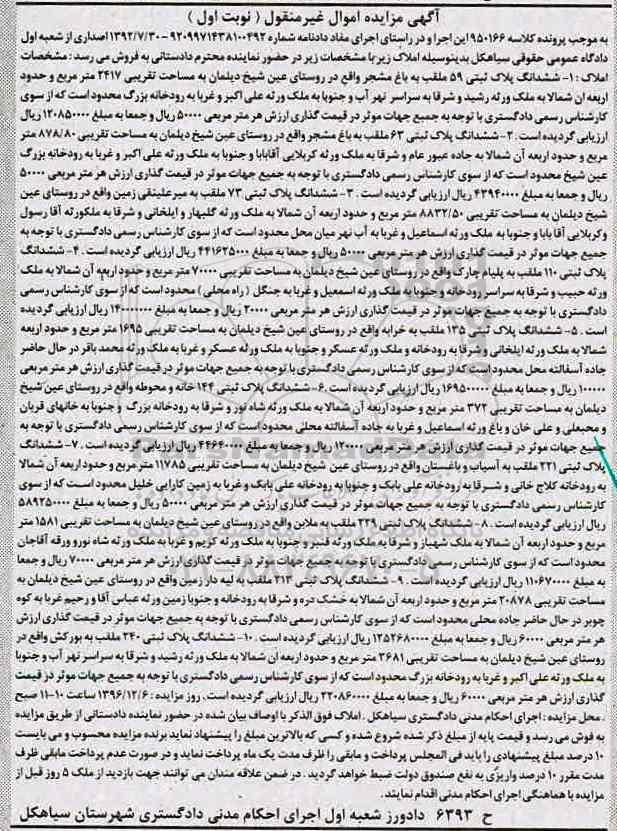 آگهی مزایده اموال غیرمنقول ( نوبت اول )
به موجب پرونده کلاسه ۹۵۰۱۶۶ این اجرا و در راستای اجرای مفاد دادنامه شماره ۹۲۰۹۹۷۱۴۳۸۱۰۰۴۹۲-۱۳۹۲/۷/۳۰ اصداری از شعبه اول
دادگاه عمومی حقوقی سیاهکل بدینوسیله املاک زیر با مشخصات زیر در حضور نماینده محترم دادستانی به فروش می رسد : مشخصات
املاک : ۱- ششدانگ پلاک ثبتی ۵۹ ملقب به باغ مشجر واقع در روستای عین شیخ دیلمان به مساحت تقریبی ۲۴۱۷ متر مربع و حدود
اربعه ان شمالا به ملک ورثه رشید و شرقا به سراسر نهر آب و جنوبا به ملک ورثه علی اکبر و غربا به رودخانه بزرگ محدود است که از سوی
کارشناس رسمی دادگستری با توجه به جمیع جهات موثر در قیمت گذاری ارزش هر متر مربعی ۵۰۰۰۰ ریال و جمعا به مبلغ ۱۲۰۸۵۰۰۰۰ ریال
ارزیابی گردیده است . ۲- ششدانگ پلاک ثبتی ۶۳ ملقب به باغ مشجر واقع در روستای عین شیخ دیلمان به مساحت تقریبی ۸۷۸/۸۰ متر
مربع و حدود اربعه آن شمالا به جاده عبور عام و شرقا به ملک ورثه کربلایی آقابابا و جنوبا به ملک ورثه علی اکبر و غربا به رودخانه بزرگ
عین شیخ محدود است که از سوی کارشناس رسمی دادگستری با توجه به جمیع جهات موثر در قیمت گذاری ارزش هر متر مربعی ۵۰۰۰۰
ریال و جمعا به مبلغ ۴۳۹۴۰۰۰۰ ریال ارزیابی گردیده است . ۳- ششدانگ پلاک ثبتی ۷۳ ملقب به میرعلینقی زمین واقع در روستای عین
شیخ دیلمان به مساحت تقریبی ۸۸۳۲/۵۰ متر مربع و حدود اربعه آن شمالا به ملک ورثه گلبهار و ایلخانی و شرقا به ملکورثه آقا رسول
وکربلایی آقا بابا و جنوبا به ملک ورثه اسماعیل و غربا به آب نهر میان محل محدود است که از سوی کارشناس رسمی دادگستری با توجه به
جمیع جهات موثر در قیمت گذاری ارزش هر متر مربعی ۵۰۰۰۰ ریال و جمعا به مبلغ ۴۴۱۶۲۵۰۰۰ ریال ارزیابی گردیده است . ۴- ششدانگ
پلاک ثبتی ۱۱۰ ملقب به پلیام چارک واقع در روستای عین شیخ دیلمان به مساحت تقریبی ۷۰۰۰۰ متر مربع و حدود اربعه آن شمالا به ملک
ورثه حبیب و شرقا به سراسر رودخانه و جنوبا به ملک ورثه اسمعیل و غربا به جنگل ( راه محلی ) محدود است که از سوی کارشناس رسمی
دادگستری با توجه به جمیع جهات موثر در قیمت گذاری ارزش هر متر مربعی ۲۰۰۰۰ ریال و جمعا به مبلغ ۱۴۰۰۰۰۰۰۰۰ ریال ارزیابی گردیده
است . ۵- ششدانگ پلاک ثبتی ۱۳۵ ملقب به خرابه واقع در روستای عین شیخ دیلمان به مساحت تقریبی ۱۶۹۵ متر مربع و حدود اربعه
شمالا به ملک ورثه ایلخانی و شرقا به رودخانه و ملک ورثه عسکر و جنوبا به ملک ورثه عسکر و غربا به ملک ورثه محمد باقر در حال حاضر
جاده آسفالته محل محدود است که از سوی کارشناس رسمی دادگستری با توجه به جمیع جهات موثر در قیمت گذاری ارزش هر متر مربعی
۱۰۰۰۰۰ ریال و جمعا به مبلغ ۱۶۹۵۰۰۰۰۰ ریال ارزیابی گردیده است .۶- ششدانگ پلاک ثبتی ۱۴۴ خانه و محوطه واقع در روستای عین شیخ
دیلمان به مساحت تقریبی ۳۷۲ متر مربع و حدود اربعه آن شمالا به ملک ورثه شاه نور و شرقا به رودخانه بزرگ و جنوبا به خانهای قربان
و محبعلی و علی خان و باغ ورثه اسماعیل و غربا به جاده آسفالته محلی محدود است که از سوی کارشناس رسمی دادگستری با توجه به
جمیع جهات موثر در قیمت گذاری ارزش هر متر مربعی ۱۲۰۰۰۰ ریال و جمعا به مبلغ ۴۴۶۴۰۰۰۰ ریال ارزیابی گردیده است . ۷- ششدانگ
پلاک ثبتی ۲۲۱ ملقب به آسیاب و باغستان واقع در روستای عین شیخ دیلمان به مساحت تقریبی ۱۱۷۸۵ متر مربع و حدود اربعه آن شمالا
به رودخانه کلاج خانی و شرقا به رودخانه علی بابک و جنوبا به رودخانه علی بابک و غربا به زمین کارایی خلیل محدود است که از سوی
کارشناس رسمی دادگستری با توجه به جمیع جهات موثر در قیمت گذاری ارزش هر متر مربعی ۵۰۰۰۰ ریال و جمعا به مبلغ ۵۸۹۲۵۰۰۰۰
ریال ارزیابی گردیده است . ۸- ششدانگ پلاک ثبتی ۲۲۹ ملقب به ملابن واقع در روستای عین شیخ دیلمان به مساحت تقریبی ۱۵۸۱ متر
مربع و حدود اربعه آن شمالا به ملک شهباز و شرقا به ملک ورثه قنبر و جنوبا به ملک ورثه کریم و غربا به ملک ورثه شاه نورو ورقه آقاجان
محدود است که از سوی کارشناس رسمی دادگستری با توجه به جمیع جهات موثر در قیمت گذاری ارزش هر متر مربعی ۷۰۰۰۰ ریال و جمعا
به مبلغ ۱۱۰۶۷۰۰۰۰ ریال ارزیابی گردیده است . ۹- ششدانگ پلاک ثبتی ۲۱۳ ملقب به لیه دار زمین واقع در روستای عین شیخ دیلمان به
مساحت تقریبی ۲۰۸۷۸ متر مربع و حدود اربعه آن شمالا به خشک دره و شرقا به رودخانه و جنوبا زمین ورثه عباس آقا و رحیم غربا به کوه
چوبر در حال حاضر جاده محلی محدود است که از سوی کارشناس رسمی دادگستری با توجه به جمیع جهات موثر در قیمت گذاری ارزش
هر متر مربعی ۶۰۰۰۰ ریال و جمعا به مبلغ ۱۲۵۲۶۸۰۰۰۰ ریال ارزیابی گردیده است . ۱۰- ششدانگ پلاک ثبتی ۲۴۰ ملقب به بورکش واقع در
روستای عین شیخ دیلمان به مساحت تقریبی ۳۶۸۱ متر مربع و حدود اربعه ان شمالا به ملک ورثه رشید و شرقا به سراسر نهر آب و جنوبا
به ملک ورثه علی اکبر و غربا به رودخانه بزرگ محدود است که از سوی کارشناس رسمی دادگستری با توجه به جمیع جهات موثر در قیمت
گذاری ارزش هر متر مربعی ۶۰۰۰۰ ریال و جمعا به مبلغ ۲۲۰۸۶۰۰۰۰ ریال ارزیابی گردیده است. روز مزایده : ۱۳۹۶/۱۲/۶ ساعت ۱۰-۱۱ صبح
. محل مزایده : اجرای احکام مدنی دادگستری سیاهکل . املاک فوق الذکر با اوصاف بیان شده در حضور نماینده دادستانی از طریق مزایده
به فوش می رسد و قیمت پایه از مبلغ ذکر شده شروع شده و کسی که بالاترین مبلغ را پیشنهاد نماید برنده مزایده محسوب و می بایست
۱۰ درصد مبلغ پیشنهادی را باید فی المجلس پرداخت و مابقی را ظرف مدت یک ماه پرداخت نماید و در صورت عدم پرداخت مابقی ظرف
مدت مقرر ۱۰ درصد واریزی به نفع صندوق دولت ضبط خواهد گردید . در ضمن علاقه مندان می توانند جهت بازدید از ملک ۵ روز قبل از
مزایده با هماهنگی اجرای احکام مدنی اقدام نمایند.
ح ۶۳۹۳ دادورز شعبه اول اجرای احکام مدنی دادگستری شهرستان سیاهکل